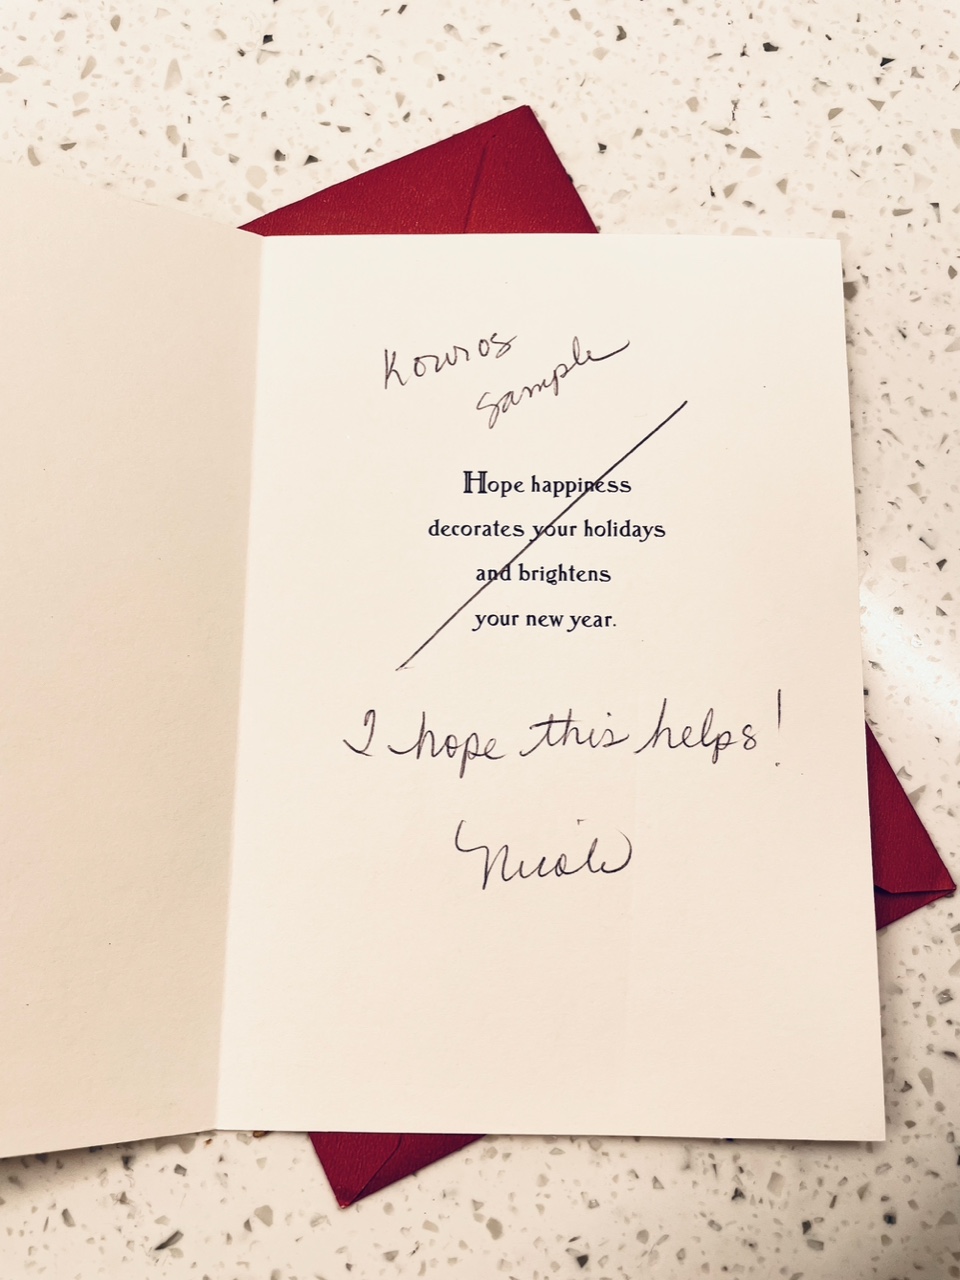 Kouros
sample
Hope happiness
decorates your holidays
and brightens
your new year.
I hope this helps!
Nicole